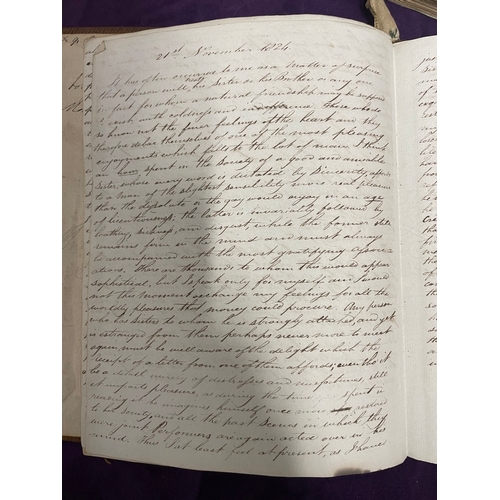 21st November 1824.
It has often occurred to me as a matter of surprise
that a person will treat his Sister or his Brother or any one
in fact for whom a natural friendship may be supposed
to exist with coldness and indifference, those who do
so know not the finer feelings of the heart and they
therefore debar themselves of one of the most pleasing
enjoyments which falls to the lot of man. I think
an hour, spent in the Society of a good and amiable
Sister, whose every word is dictated by Sincerity, affords
to a man of the slightest sensibility more real pleasure
than the dissolute or the gay would enjoy in an age
of licentiousness, the latter is invariably followed by
loathing, and disgust, while the former still
remains firm in the mind and must always
be accompanied with the most gratifying
There are thousands to whom this would appear
sophistical, but I speak only for myself and I would
not this moment exchange my feelings for all the
worldly pleasures that money could procure. Any person
who has Sisters to whom he is strongly attached, and yet
is estranged from them perhaps never more to meet
again, must be well aware of the delight which the
receipt of a letter from one of them affords; even tho it
be a detail merely of distresses and misfortunes, still
it imparts pleasure, as during the time spent in
reading it he imagines himself once more restored
to his and all the past Scenes in which they
were joint Performers are again acted over in his
mind. Thus I at least feel at present, as I have